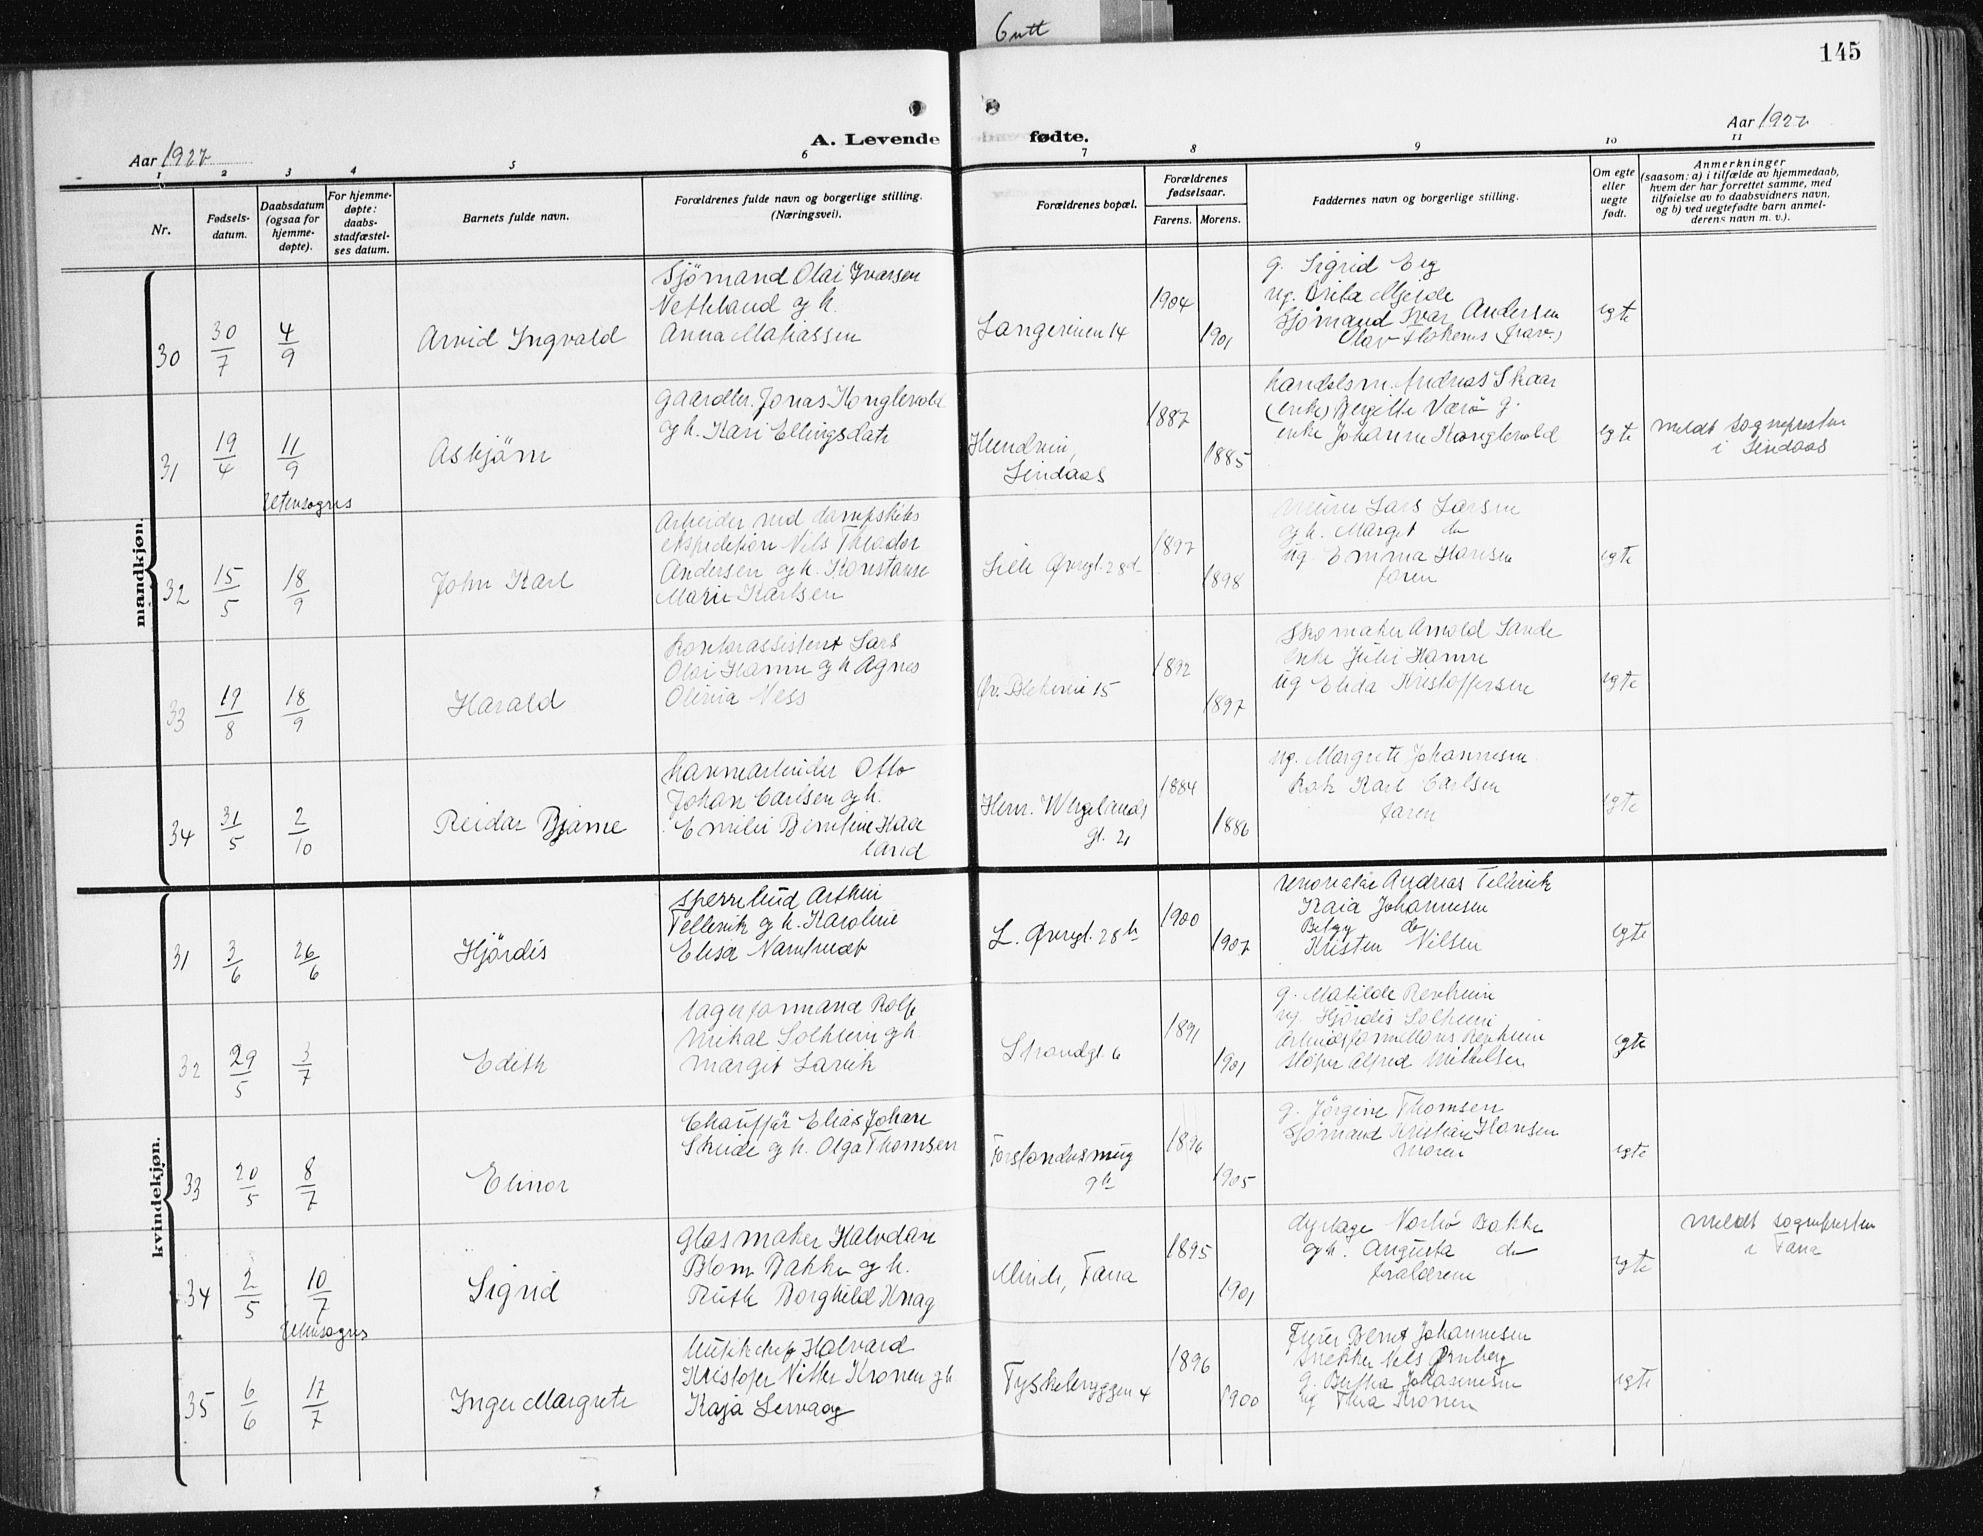 6 utt
145
A. Levende fødte.
Aar 1927
Aar 1927
1 2 3 4 5 6 7 8 9 10 11
Nr.
Fødsels-
datum.
Daabsdatum
(ogsaa for
hjemme-
døpte).
For hjemme-
døpte:
daabs-
stadfæstel-
ses datum.
Barnets fulde navn.
Forældrenes fulde navn og borgerlige stilling.
(Næringsvei).
Forældrenes bopæl.
Forældrenes
fødselsaar.
Farens. Morens.
Faddernes navn og borgerlige stilling.
Om egte
eller
uegte
født.
Anmerkninger
(saasom: a) i tilfælde av hjemmedaab,
hvem der har forrettet samme, med
tilføielse av to daabsvidners navn,
og b) ved uegtefødte barn anmel-
derens navn m. v.).
mandkjøn.
30
30/7
4/9
Arvid Ingvald
Sjömand Olai Ivarsen
Netteland og h.
Anna Matiassen
Langeveien 14
1904
1901
g. Sigrid Eeg
ug. Brita Mjelde
Sjömand Ivar Andersen
Olav (frav.)
egte
31
19/4
11/9
Utensogns
Asbjörn
Gaardbr. Jonas Konglevold
og h. Kari Ellingsdatr
Hundvin,
Lindaas
1887
1885
handelsm. Andreas Skaar
(enke) Bergitte Værö g.
enke Johanne Konglevold
egte
meldt sognepresten
i Lindaas
32
15/5
18/9
John Karl
Arbeider ved dampskibs
ekspedition Nils Theodor
Andersen og h. Konstanse
Marie Karlsen
Lille Øvregt. 28d
1897
1898
murer Lars Larsen
og h. Margit do
ug Emma Hansen
faren
egte
33
19/8
18/9
Harald
Kontorassistent Lars
Olai Hamre og h Agnes
Olivia Ness
Øv. Blekevei 15
1892
1897
Skomaker Arnold Sande
enke Julie Hamre
ug Elida Kristoffersen
egte
34
31/5
2/10
Reidar Bjarne
havnearbeider Otto
Johan Carlsen og h.
Emilie Berntine Haa
land
Henr. Wergelands
gt. 21
1884
1886
ug. Margrete Johannesen
Kok Karl Carlsen
faren
egte
kvindekjøn.
31
3/6
26/6
Hjördis
Arthur
Tellevik og h. Karoline
Elisa
L. Øvregt. 28h
1900
1907
Andreas Tellevik
Kaia Johannesen
Betzy do
Kristen Nilsen
egte
32
29/5
3/7
Edith
lagerformand Rolf
Mikal Solheim og h.
Margit Larvik
Strandgt 6
1891
1901
g. Matilde Revheim
ug Hjördis Solheim
Revheim
Alfred Mikkelsen
egte
33
20/5
8/7
Elinor
Chaufför Elias Johan
Skeide og h. Olga Thomsen
Forstandersmug
9b
1896
1905
g. Jörgine Thomsen
Sjömand Kristian Hansen
moren
egte
34
2/5
10/7
Utensogns
Sigrid
Glasmaker Halvdan
Blom Bakke og h.
Ruth Borghild Knag
Minde, Fana
1895
1901
dyrlæge Bakke
og h. Augusta do
forældrene
egte
meldt sognepresten
i Fana
35
6/6
17/7
Inger Margrete
Halvard
Kristofer Nitter Kronen og h.
Kaja Lervaag
Tyskebryggen 4
1896
1900
Bernt Johannesen
snekker Nils Ørnberg
g. Bertha Johannesen
ug Thea Kronen
egte